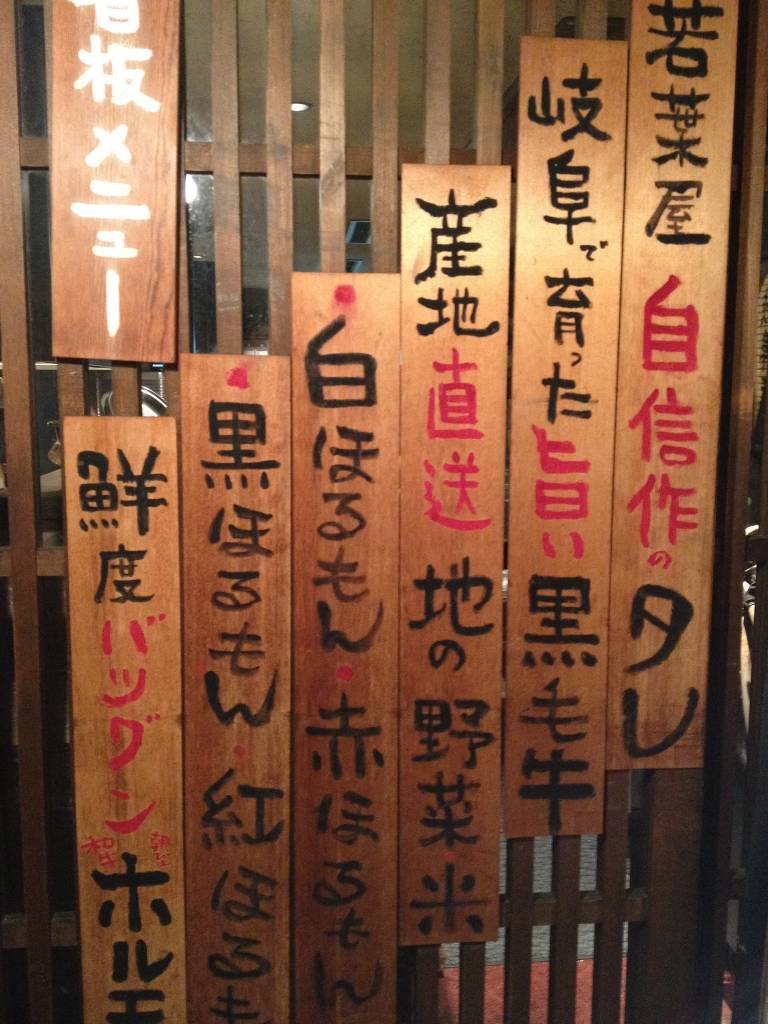 若葉屋 自信作のタレ
岐阜で育った旨い黒毛牛
産地直送 地の野菜・米
・白ほるもん・赤ほるもん
・黒ほるもん・紅ほるも
鮮度バツグン ホルモ
看板メニュー